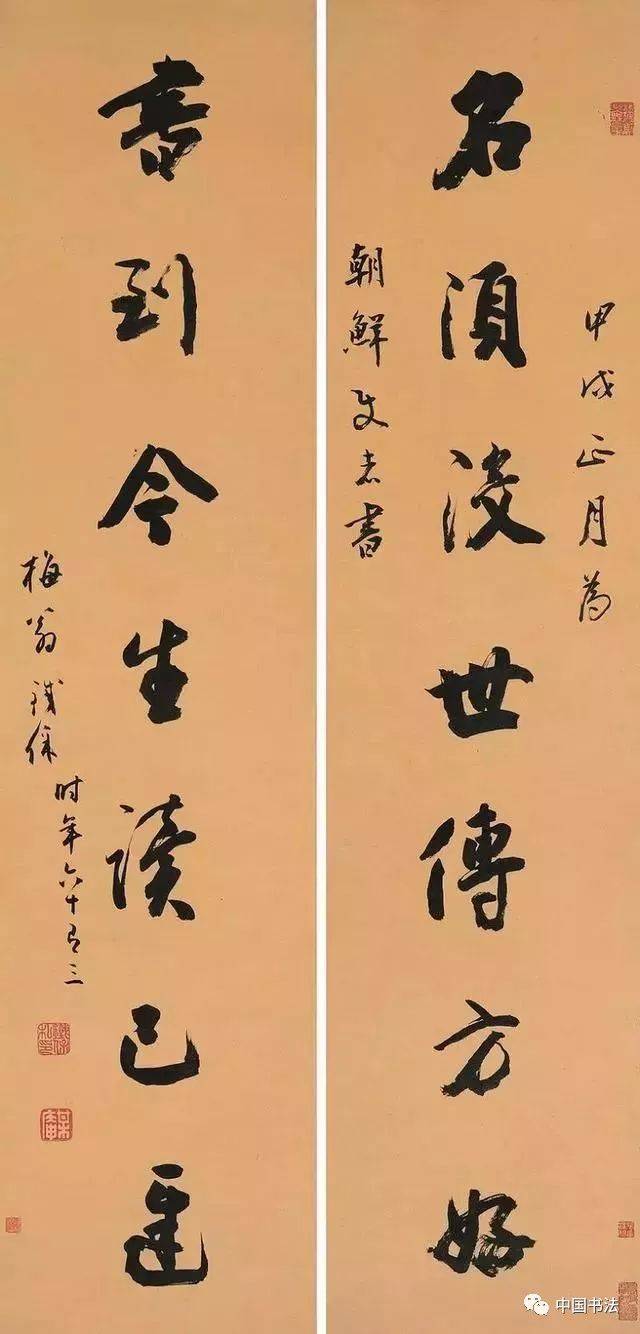 甲戌正月為
名須後世傳方好
朝鮮書
書到今生讀已遲
梅翁鐵保時年六十有三
中国书法